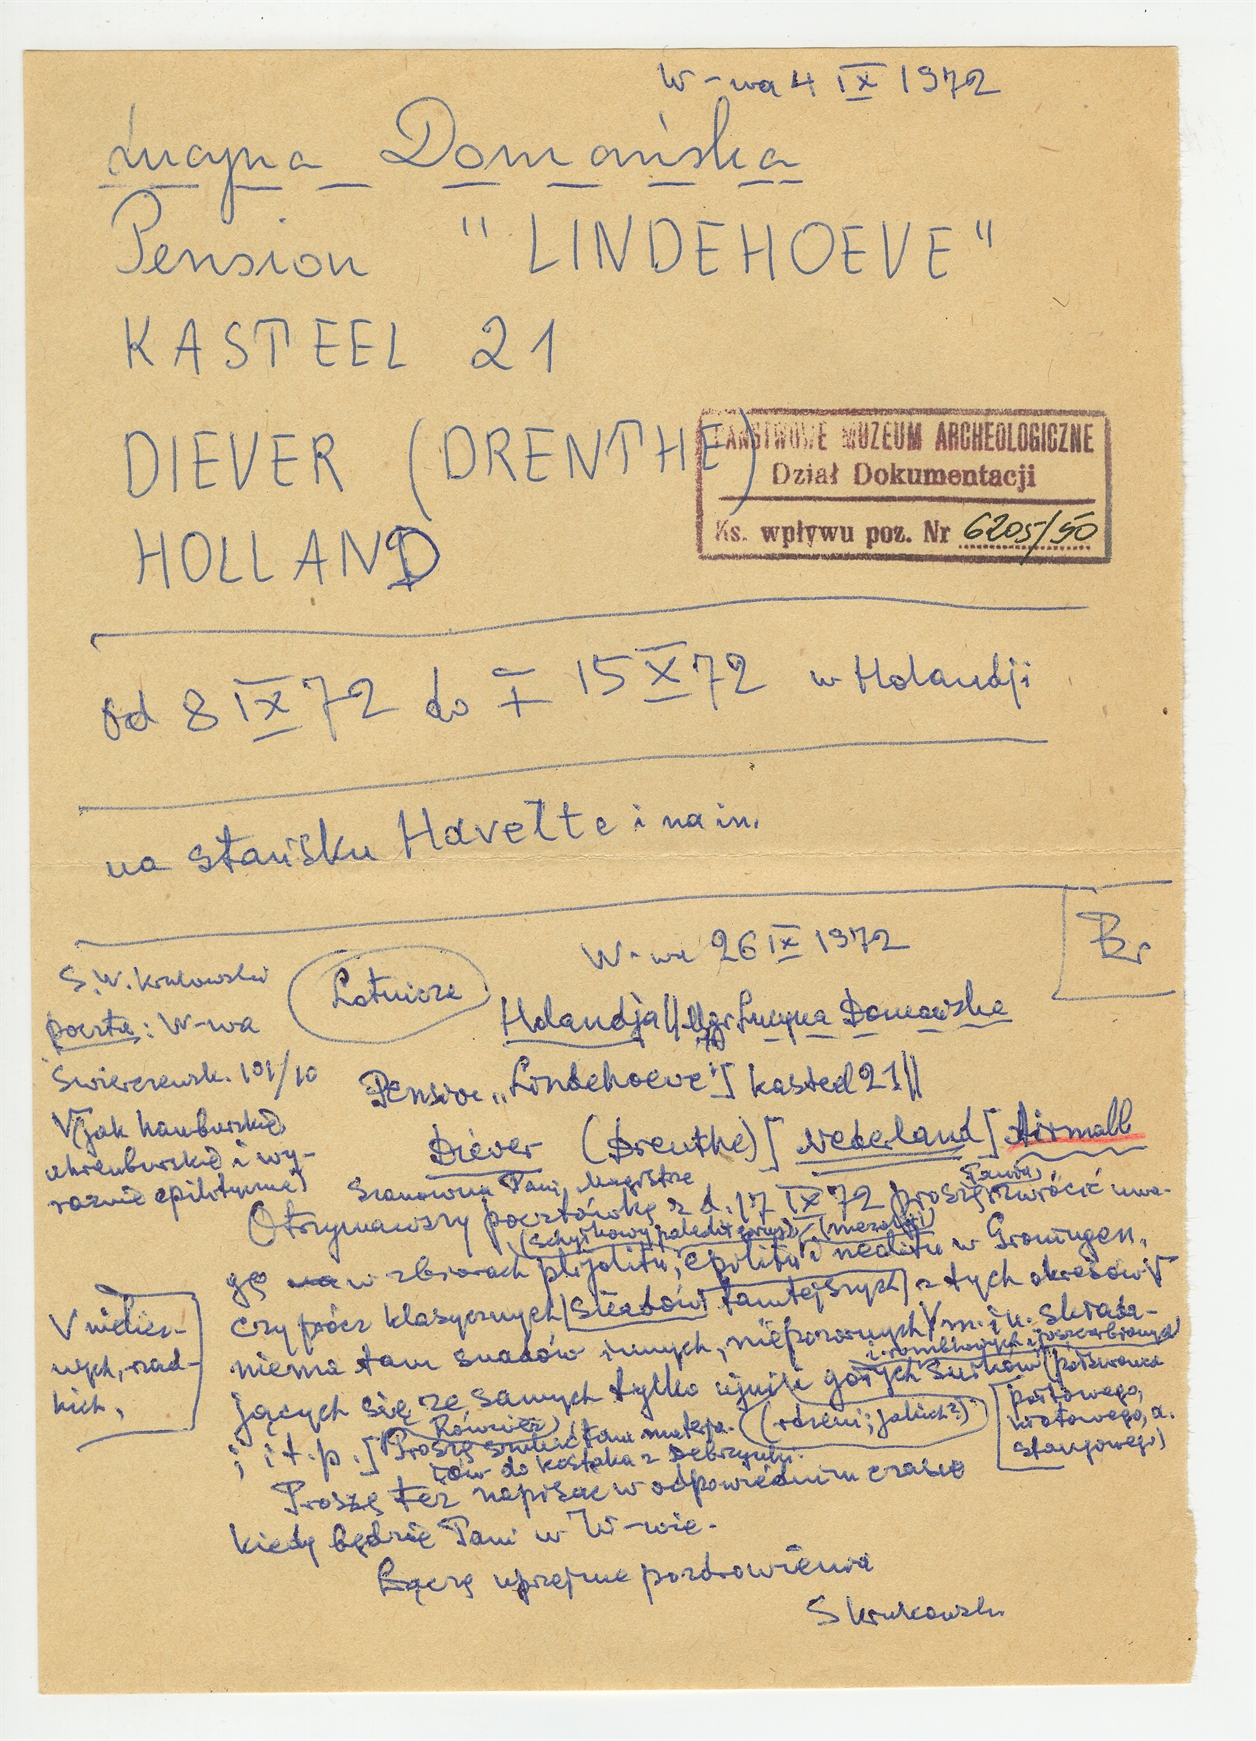 W-wa 4 IX 1972
Łucyna Domańska
Pension "LINDEHOEVE"
KASTEEL 21
DIEVER (DRENTHE)
HOLLAND
PAŃSTWOWE MUZEUM ARCHEOLOGICZNE
Dział Dokumentacji
Ks. wpływu poz. Nr 6205/50
od 8 IX 72 do 15 X 72 w Holandji
na stańsku Havelte i na in.
W-wa 26 IX 1972
Pr
S. W. Krukowski
poczta: W-wa
Swierczewsk. 101/10
Lotnicze
Holandja // Mgr. Łucyna Domańska
Pension „Lindehoeve"] Kasteel 21 //
Diever (Drenthe)] Nederland] Airmall
V (jak hamburskie
ahrenburskie i wy-
raźnie epilityczne)
Szanowna Pani Magistro
Otrzymawszy pocztówkę z d. 17 IX 72 proszę zwrócić uwa-
(schyłkowy paleolit (mezolit)
gę w zbiorach plejolitu, epilitu i neolitu w Groningen,
czy prócz klasycznych śladów tamtejszych z tych okresów V
niema tam śladów innych, niepozornych V m. i n. składa-
jących się ze samych tylko
V nielicz-
nych, rzad-
kich,
(rdzeni; jakich?)
i i t. p.] Proszę również szukać tam materja-
łów do kostaka z Debrzynki.
Proszę też napisać w odpowiednim czasie
kiedy będzie Pani w W-wie.
Łączę uprzejme pozdrowienia
S Krukowski